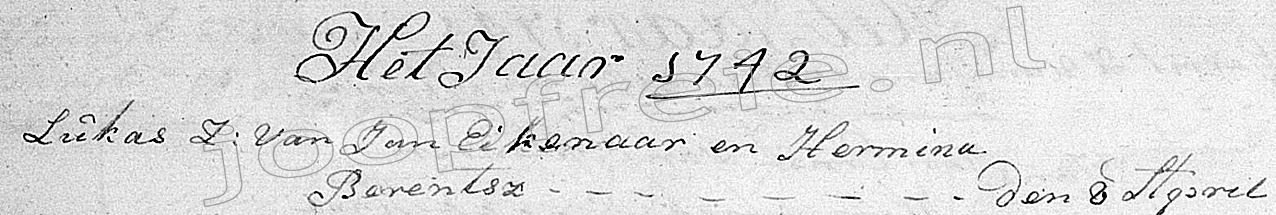 Het Jaar 1742
Lûkas Z: van Jan Eikenaar en Hermina
Berentsz - - - - - - - - Den 8 April
joopfreie.nl